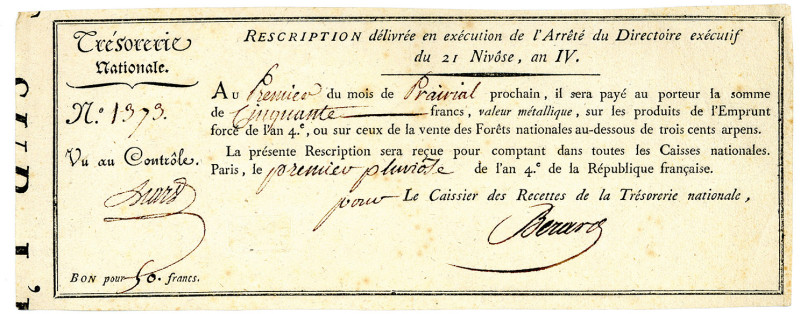 Trésorerie
Nationale.
N.º 1373.
Vu au Contrôle.
BON pour 50. francs.
RESCRIPTION délivrée en exécution de l'Arrêté du Directoire exécutif
du 21 Nivôse, an IV.
AU Premier du mois de Prairial prochain, il sera payé au porteur la somme
de Cinquante francs, valeur métallique, sur les produits de l'Emprunt
forcé de l'an 4.e, ou sur ceux de la vente des Forêts nationales au-dessous de trois cents arpens.
La présente Rescription sera reçue pour comptant dans toutes les Caisses nationales.
Paris, le premier pluviôse de l'an 4.e de la République française.
pour Le Caissier des Recettes de la Trésorerie nationale,
Berard